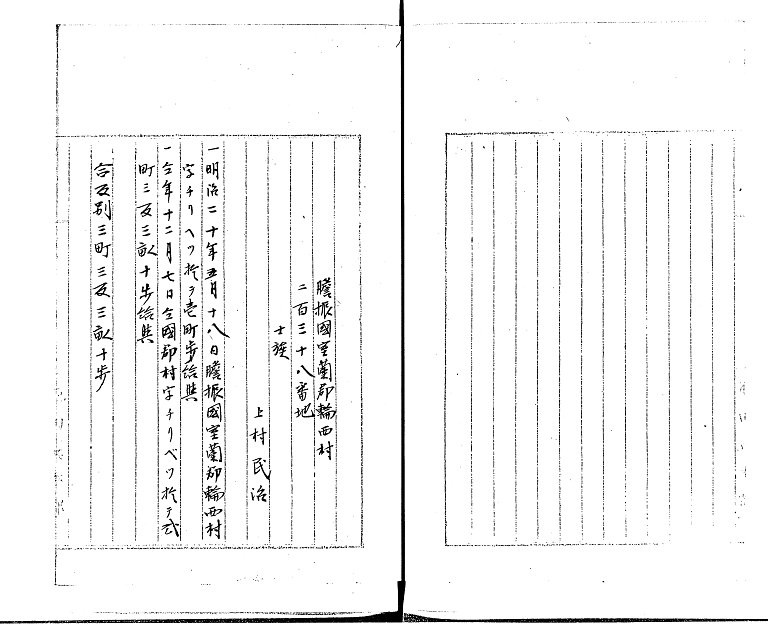 膽振國室蘭郡輪西村
二百三十八番地
士族
上村民治
一明治二十年五月十八日膽振國室蘭郡輪西村
字チリベツ於テ壱町歩給與
一仝年十二月七日仝國郡村字チリベツ於テ弐
町三反三畝十歩給與
合反別三町三反三畝十歩